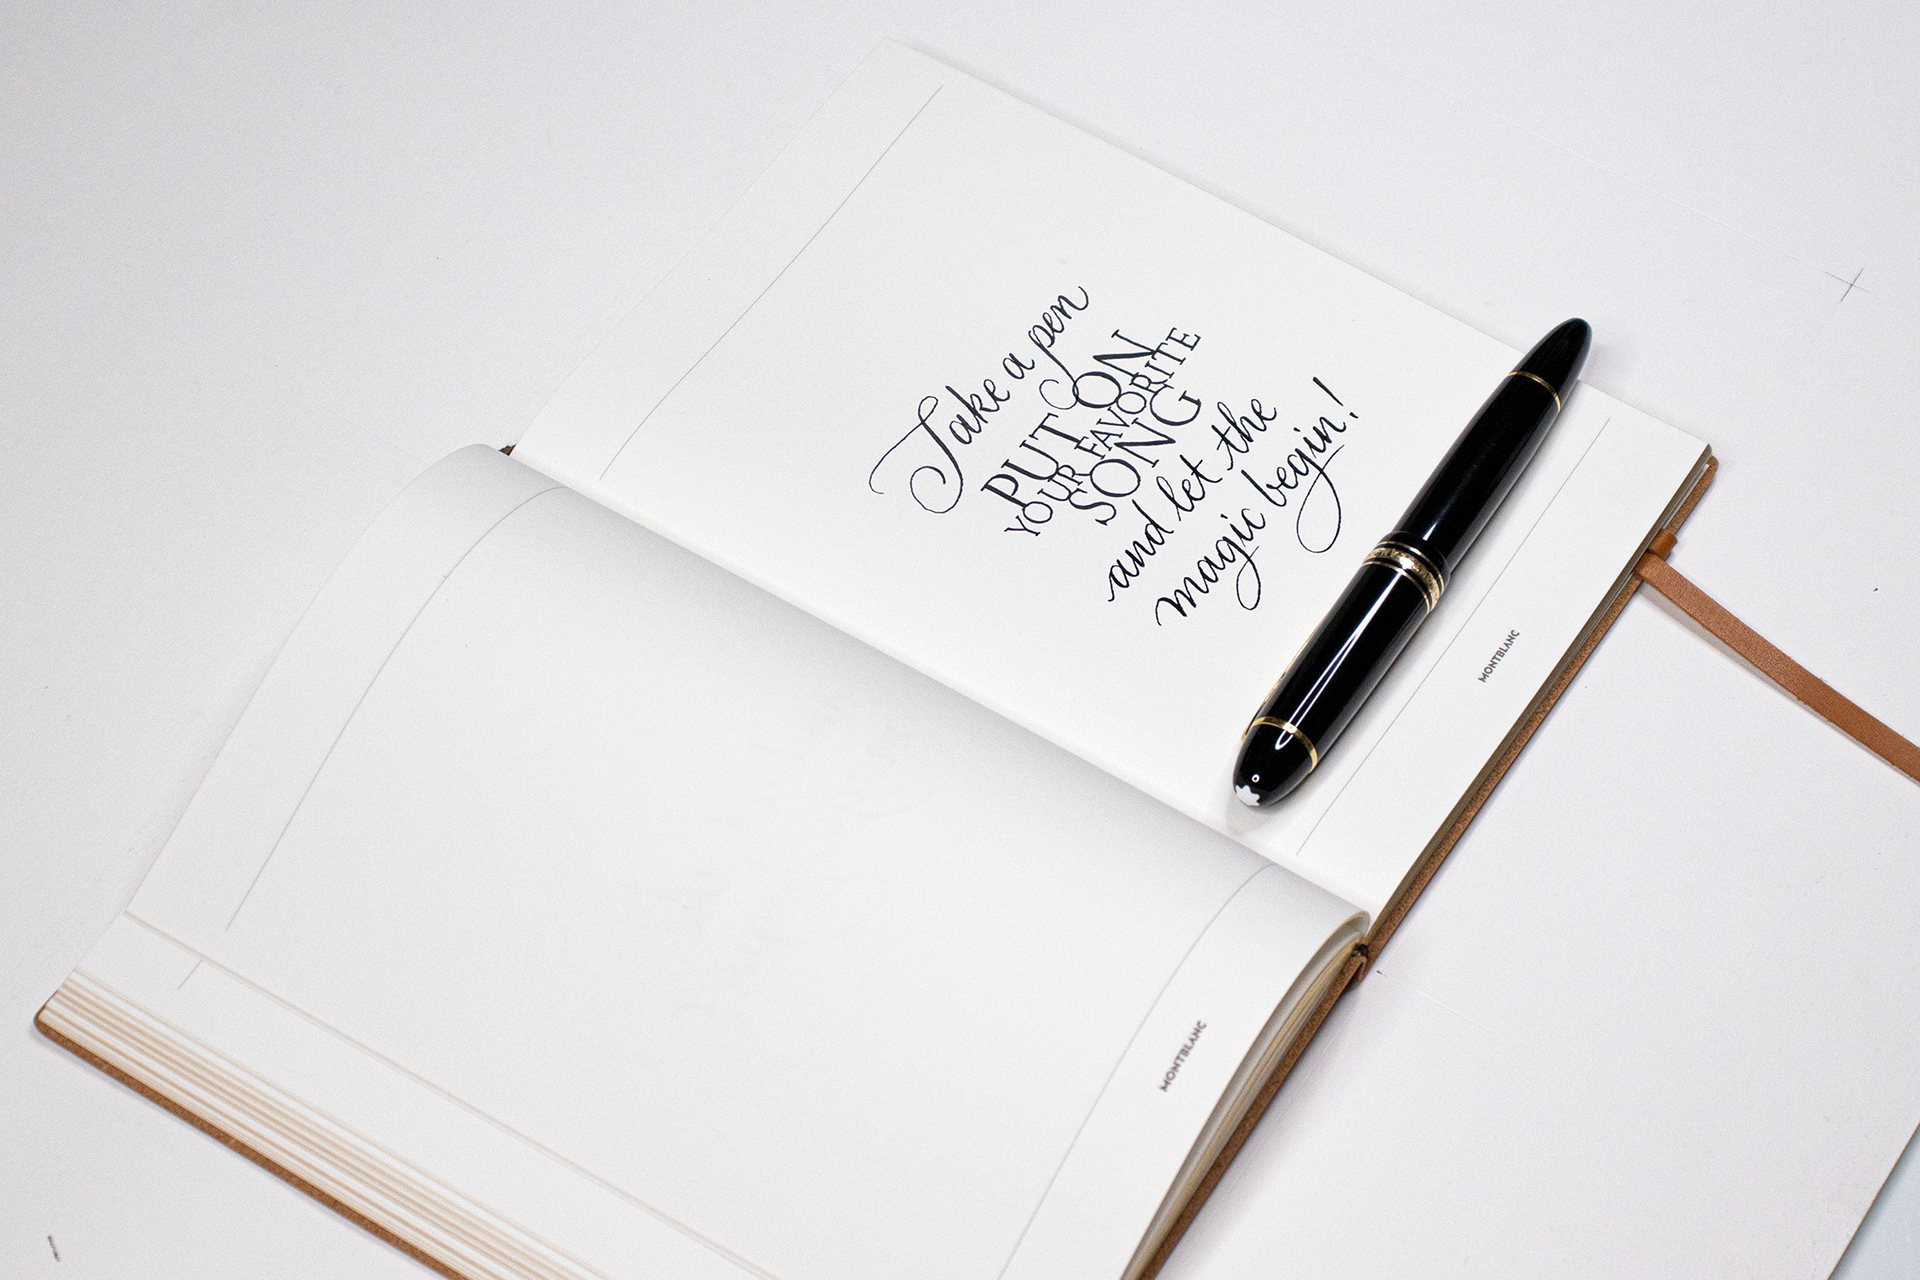 Take a pen
PUT ON
YOUR FAVORITE
SONG
and let the
magic begin!
MONTBLANC
MONTBLANC